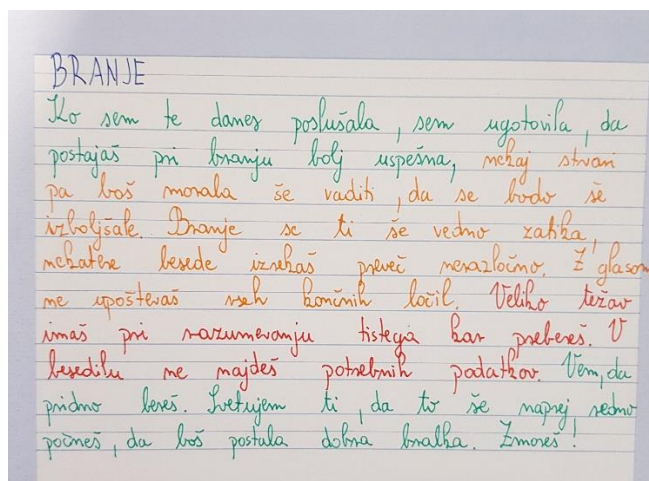 BRANJE
Ko sem te danes poslušala, sem ugotovila, da
postajaš pri branju bolj uspešna, nekaj stvari
pa boš morala še vaditi, da se bodo še
izboljšale. Branje se ti še vedno zatika,
nekatere besede izrekaš preveč nerazločno. Z glasom
ne upoštevaš vseh končnih ločil. Veliko težav
imaš pri razumevanju tistega kar prebereš. V
besedilu ne najdeš potrebnih podatkov. Vem, da
pridno bereš. Svetujem ti, da to še naprej redno
počneš, da boš postala dobra bralka. Zmoreš!